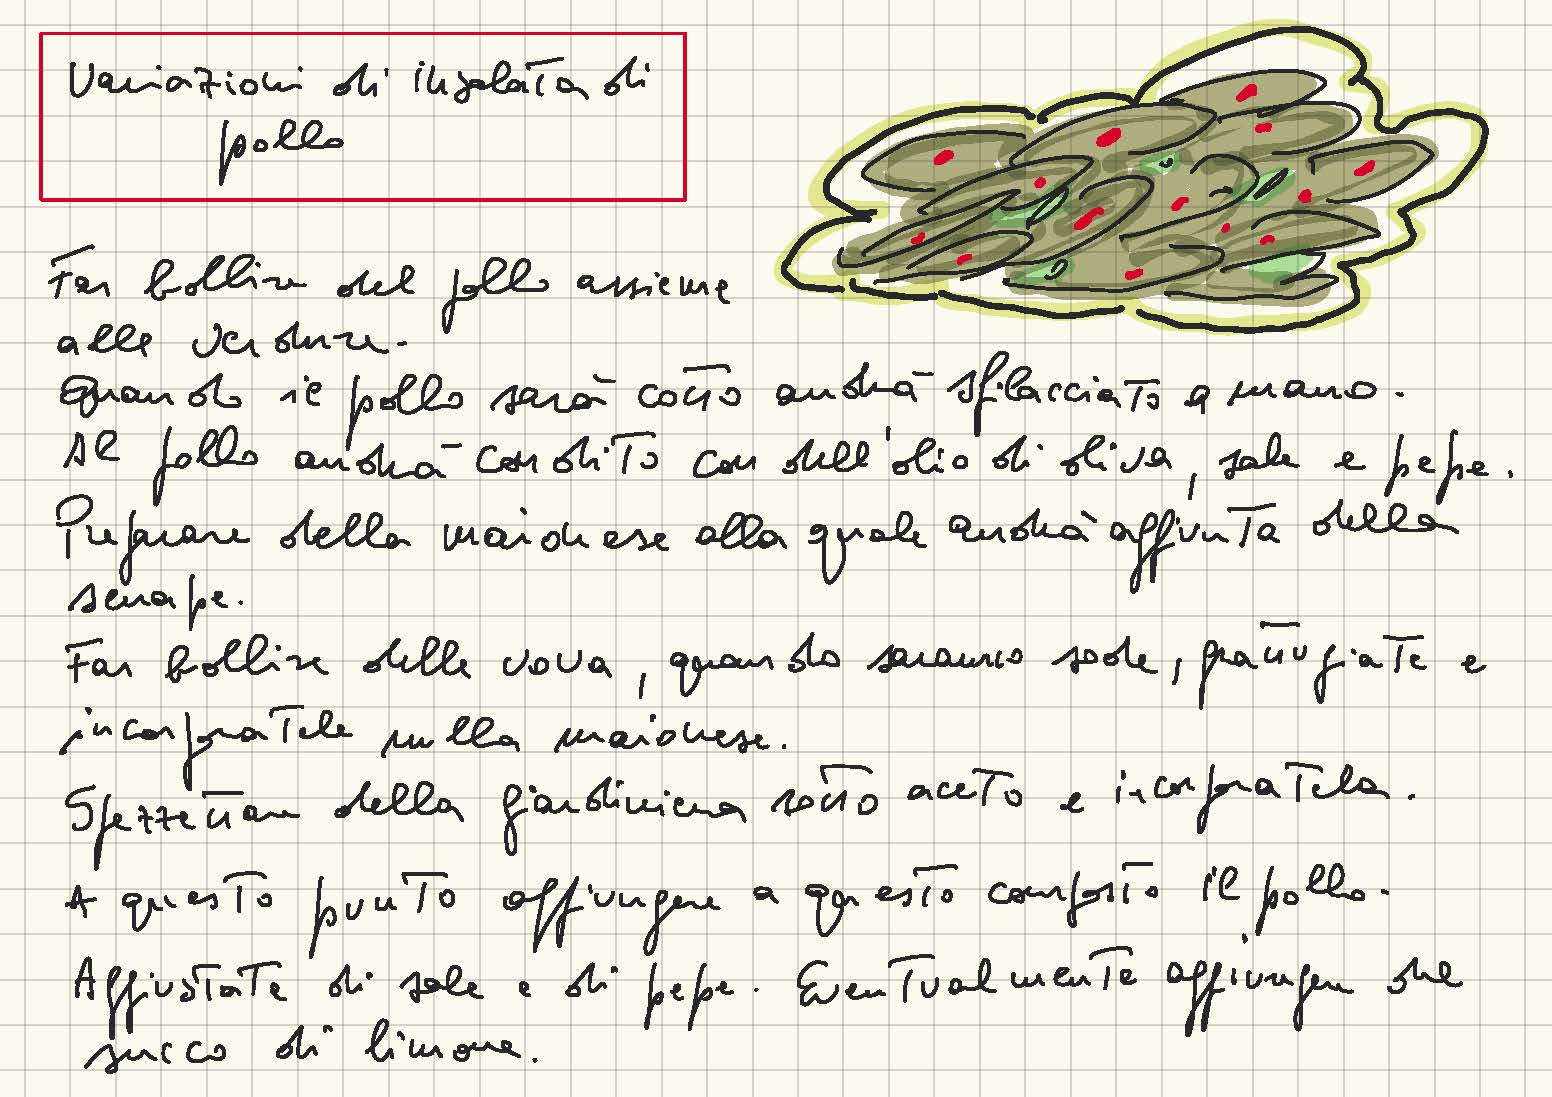 Variazioni di insalata di
pollo
Far bollire del pollo assieme
alle verdure.
Quando il pollo sarà cotto andrà sfilacciato a mano.
Al pollo andrà condito con dell'olio di oliva, sale e pepe.
Preparare della maionese alla quale andrà aggiunta della
senape.
Far bollire delle uova, quando saranno sode, grattugiate e
incorporatele nella maionese.
Spezzettare della giardiniera sotto aceto e incorporatela.
A questo punto aggiungere a questo composto il pollo.
Aggiustate di sale e di pepe. Eventualmente aggiungere del
succo di limone.